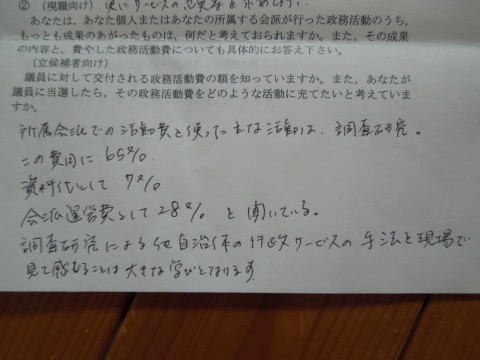 ② (現職向け) 更にサービスの
あなたは、あなた個人またはあなたの所属する会派が行った政務活動のうち、
もっとも成果のあがったものは、何だと考えておられますか。また、その成果
の内容と、費やした政務活動費についても具体的にお答え下さい。
(立候補者向け)
議員に対して交付される政務活動費の額を知っていますか。また、あなたが
議員に当選したら、その政務活動費をどのような活動に充てたいと考えていま
すか。
所属会派での活動費を使った主な活動は、調査研究。
この費用に 65%。
資料代として 7%
会派運営費として 28% と聞いている。
調査研究による他自治体の行政サービスの手法を現場で
見て感むることは大きな学びとなります